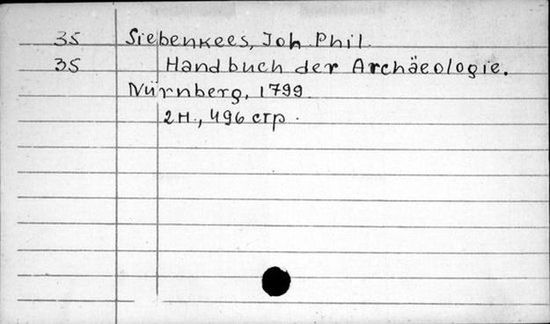 35 Siebenkees, Joh Phil.
35 Handbuch der Archäeologie.
Nürnberg, 1799.
2 н., 496 стр.